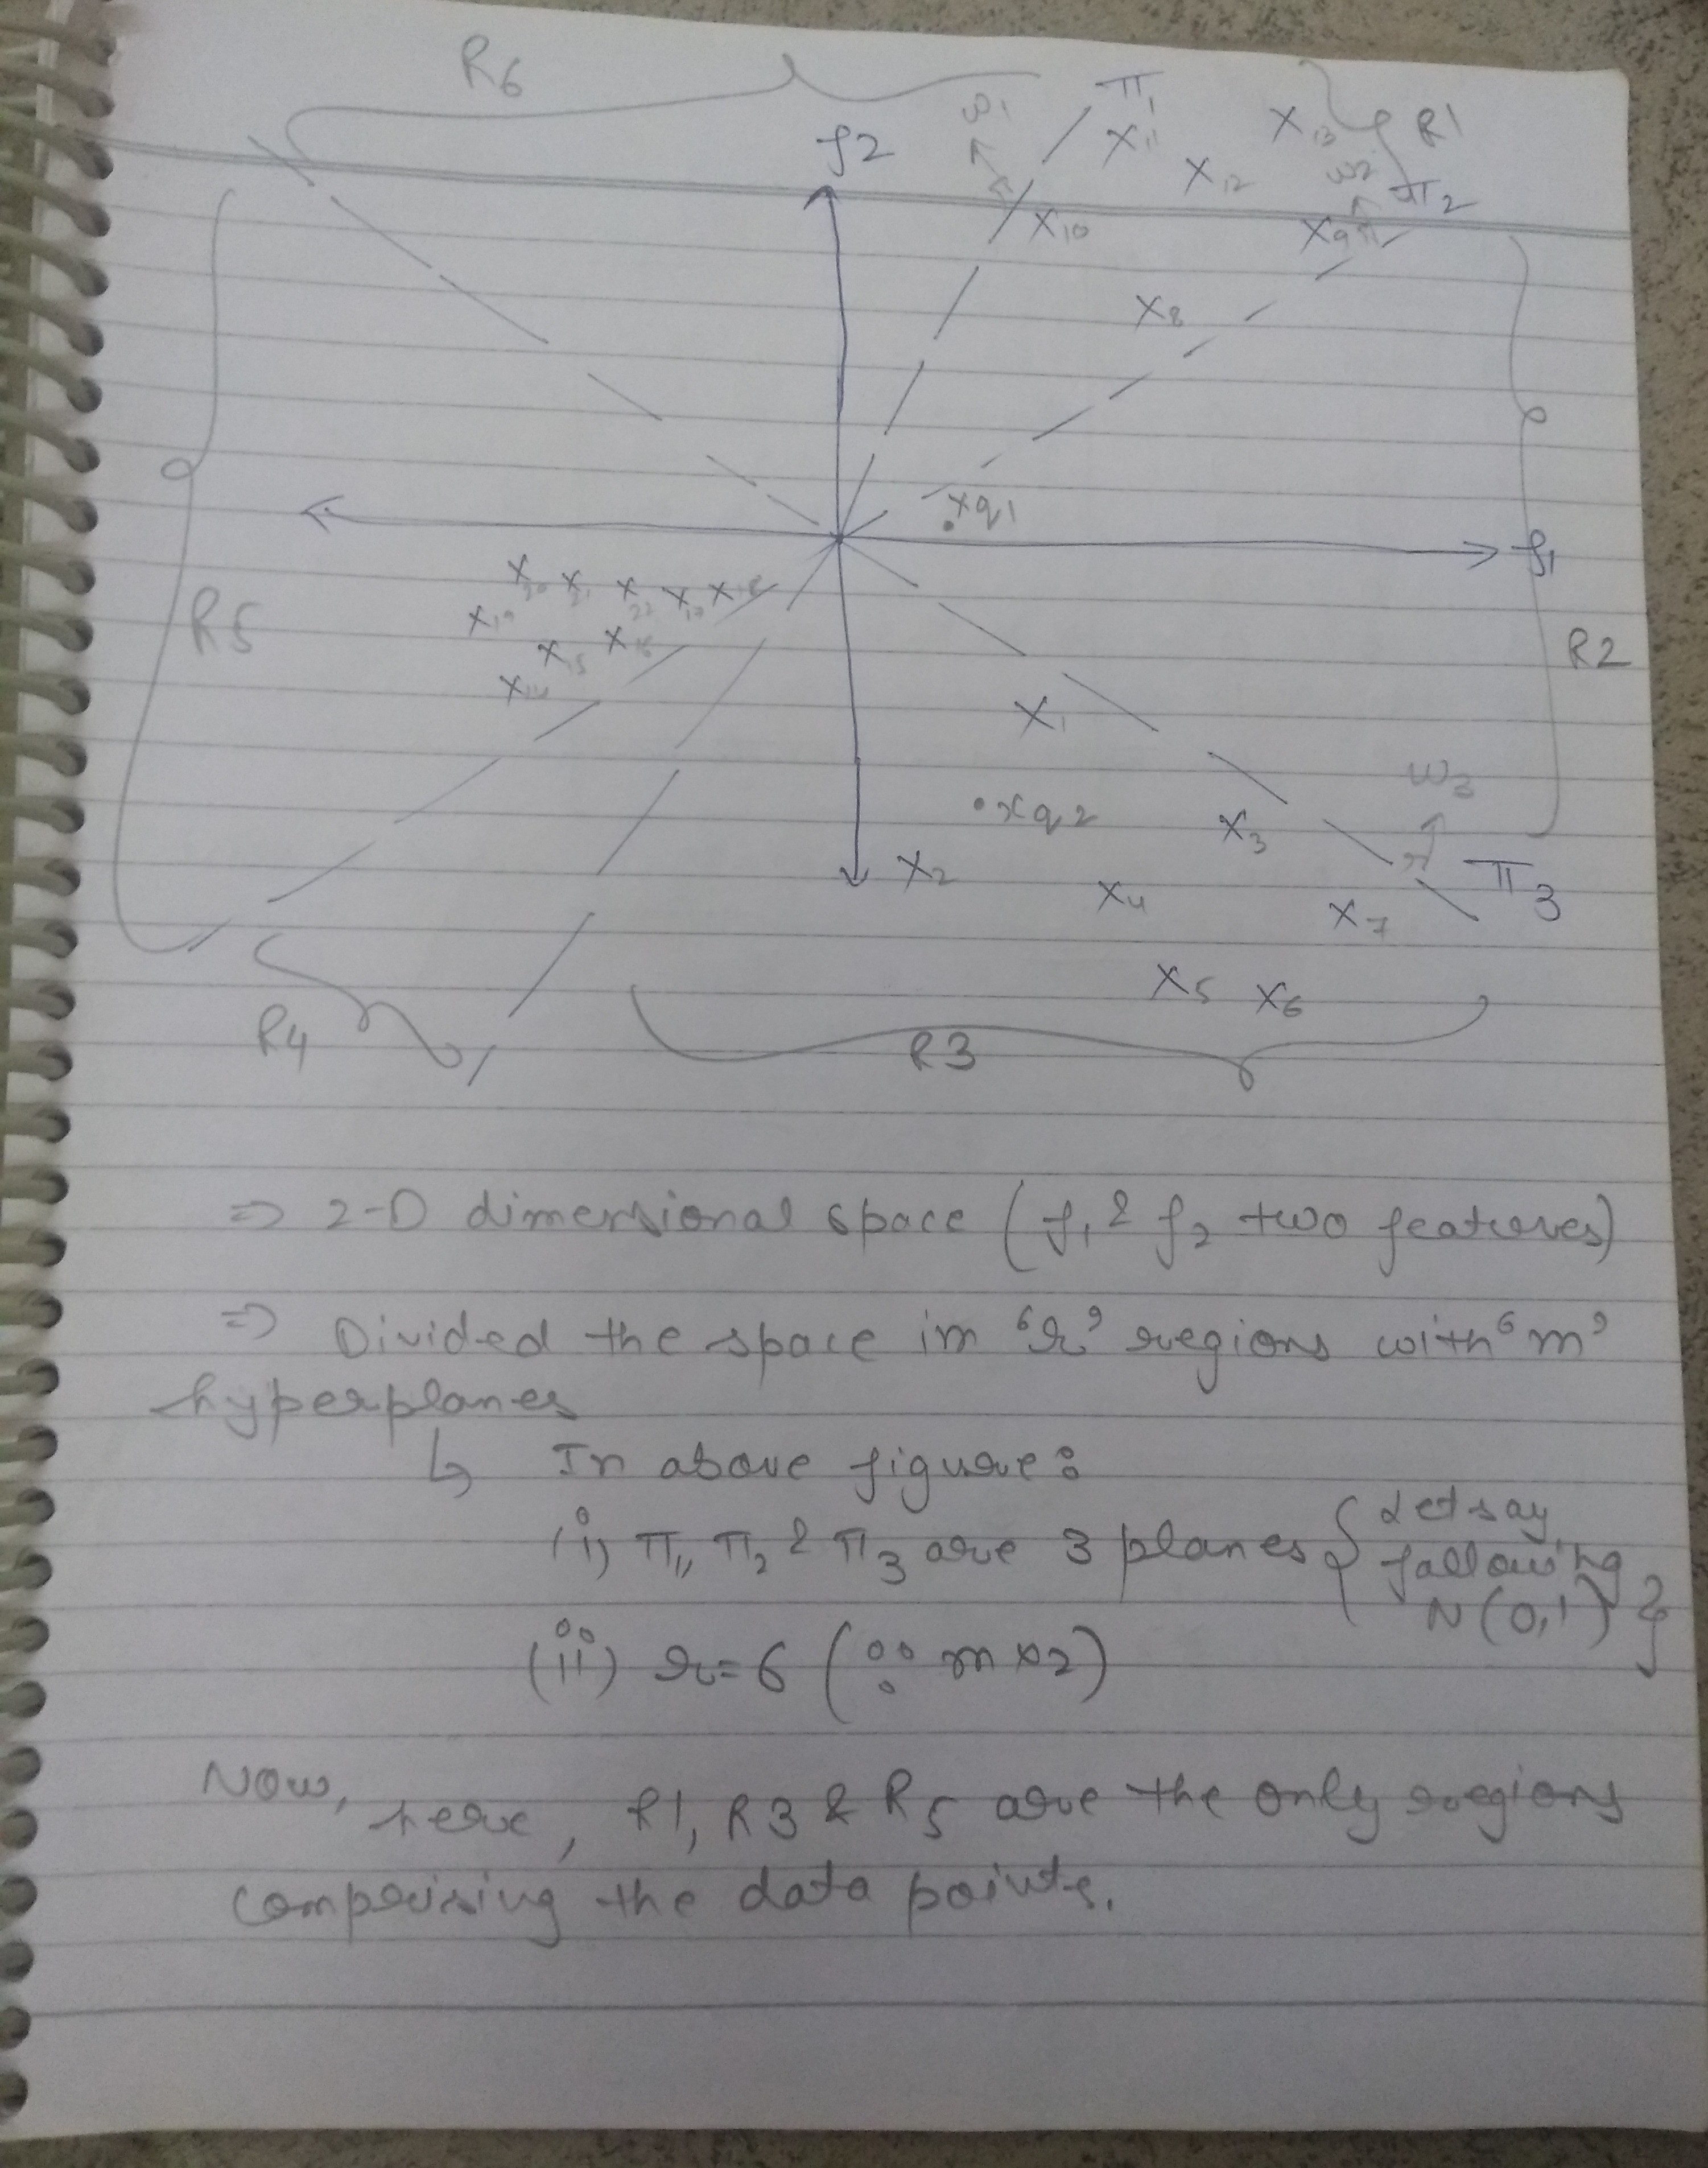 R6
π1
ω1
x11
x13
R1
f2
x12
ω2
π2
x10
x9
x8
xq1
f1
x20 x21 x22 x17 x18
x19
R5
x15 x16
x14
R2
x1
ω3
xq2
x3
x2
x4
π3
x7
x5 x6
R4
R3
⇒ 2-D dimensional space (f1 & f2 two features)
⇒ Divided the space in 'r' regions with 'm'
hyperplanes
↳ In above figure:
(i) π1, π2 & π3 are 3 planes { Let say
following
N(0,1) }
(ii) r=6 (∵ m×2)
Now, here, R1, R3 & R5 are the only regions
comprising the data points.